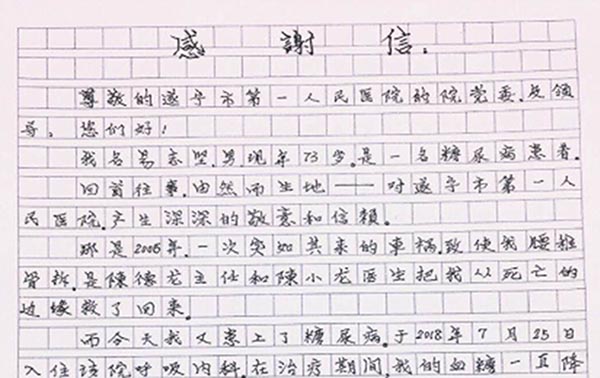 感謝信.
尊敬的遂宁市第一人民医院的院党委.及领
导,您们好!
我名易志坚.男.现年73岁.是一名糖尿病患者.
回首往事.由然而生地——对遂宁市第一人
民医院.产生深深的敬意和信賴.
那是2005年.一次突如其来的車祸.致使我腰椎
骨折.是陳德龙主任和陳小龙医生把我从死亡的
边缘救了回来.
而今天我又患上了糖尿病.于2018年7月25日
入住该院呼吸内科.在治疗期间,我的血糖一直降